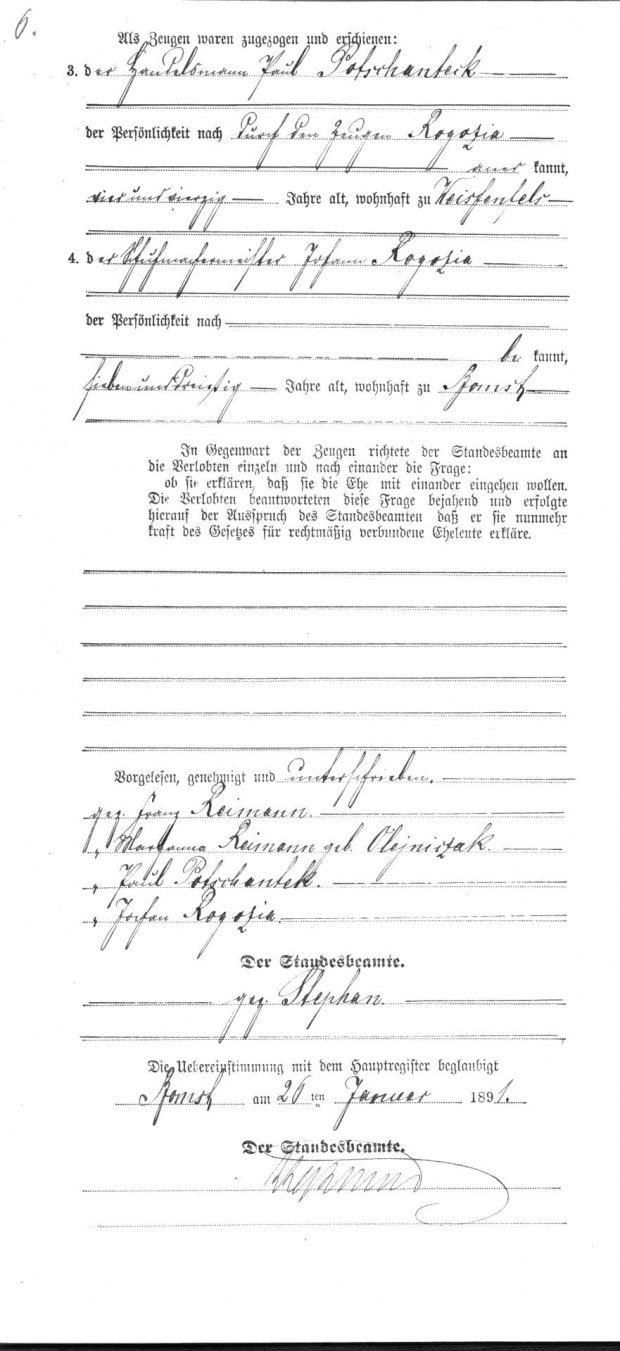 6.
Als Zeugen waren zugezogen und erschienen:
3. der Handelsmann Paul Potschanteck
der Persönlichkeit nach durch den Zeugen Rogozia
aner kannt,
vier und vierzig Jahre alt, wohnhaft zu Weissenfels
4. der Schuhmachermeister Johann Rogozia
der Persönlichkeit nach
be kannt,
sieben und dreißig Jahre alt, wohnhaft zu Bomst
In Gegenwart der Zeugen richtete der Standesbeamte an
die Verlobten einzeln und nach einander die Frage:
ob sie erklären, daß sie die Ehe mit einander eingehen wollen.
Die Verlobten beantworteten diese Frage bejahend und erfolgte
hierauf der Ausspruch des Standesbeamten daß er sie nunmehr
kraft des Gesetzes für rechtmäßig verbundene Eheleute erkläre.
Vorgelesen, genehmigt und unterschrieben.
gez. Franz Reimann.
„ Maryanna Reimann geb. Olejniczak.
„ Paul Potschantek.
„ Johan Rogozia.
Der Standesbeamte.
gez. Stephan.
Die Uebereinstimmung mit dem Hauptregister beglaubigt
Bomst am 20 ten Januar 1891.
Der Standesbeamte.